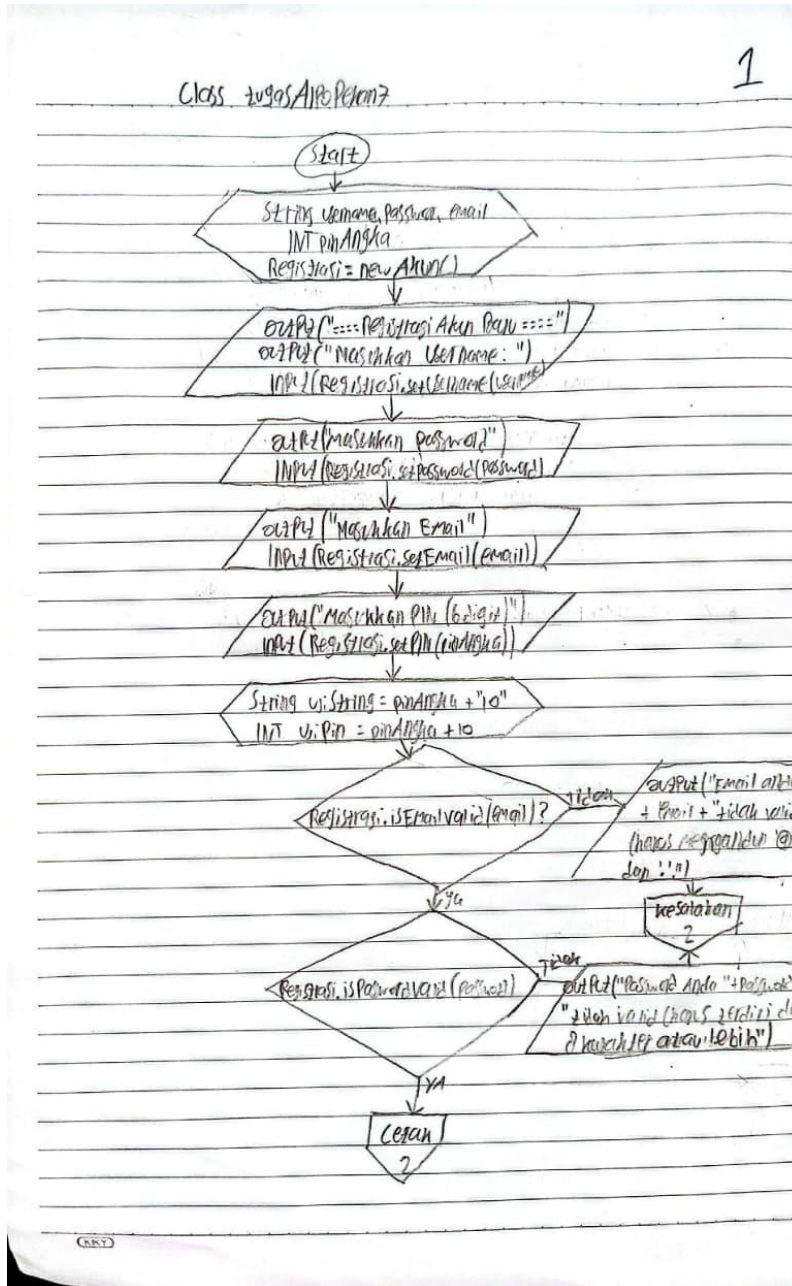 1
Class tugasAlPoPekan7
Start
String username, Passwor, email
INT pinAngka
Registrasi = new Akun()
output("====Registrasi Akun Baru ====")
output("Masukkan Username: ")
INPut(Registrasi.setUsername(
output("Masukkan password")
INPut(Registrasi.setPassword(Password)
output("Masukkan Email")
INPut(Registrasi.setEmail(email))
output("Masukkan PIN (6 digit)")
INPut(Registrasi.setPIN(pinAngka))
String ujiString = pinAngka + "10"
INT ujiPin = pinAngka + 10
Registrasi.isEmailValid(email)?
Tidak
output("Email
+ email + "tidak vali
(harus mengandun '@
dan '.'")
ya
Kesalahan
2
Registrasi.isPasswordValid(passwor)
Tidak
output("Password Anda "+Passwo
"tidak valid (harus terdiri d
8 karakter atau lebih")
YA
Cetak
2
KKY